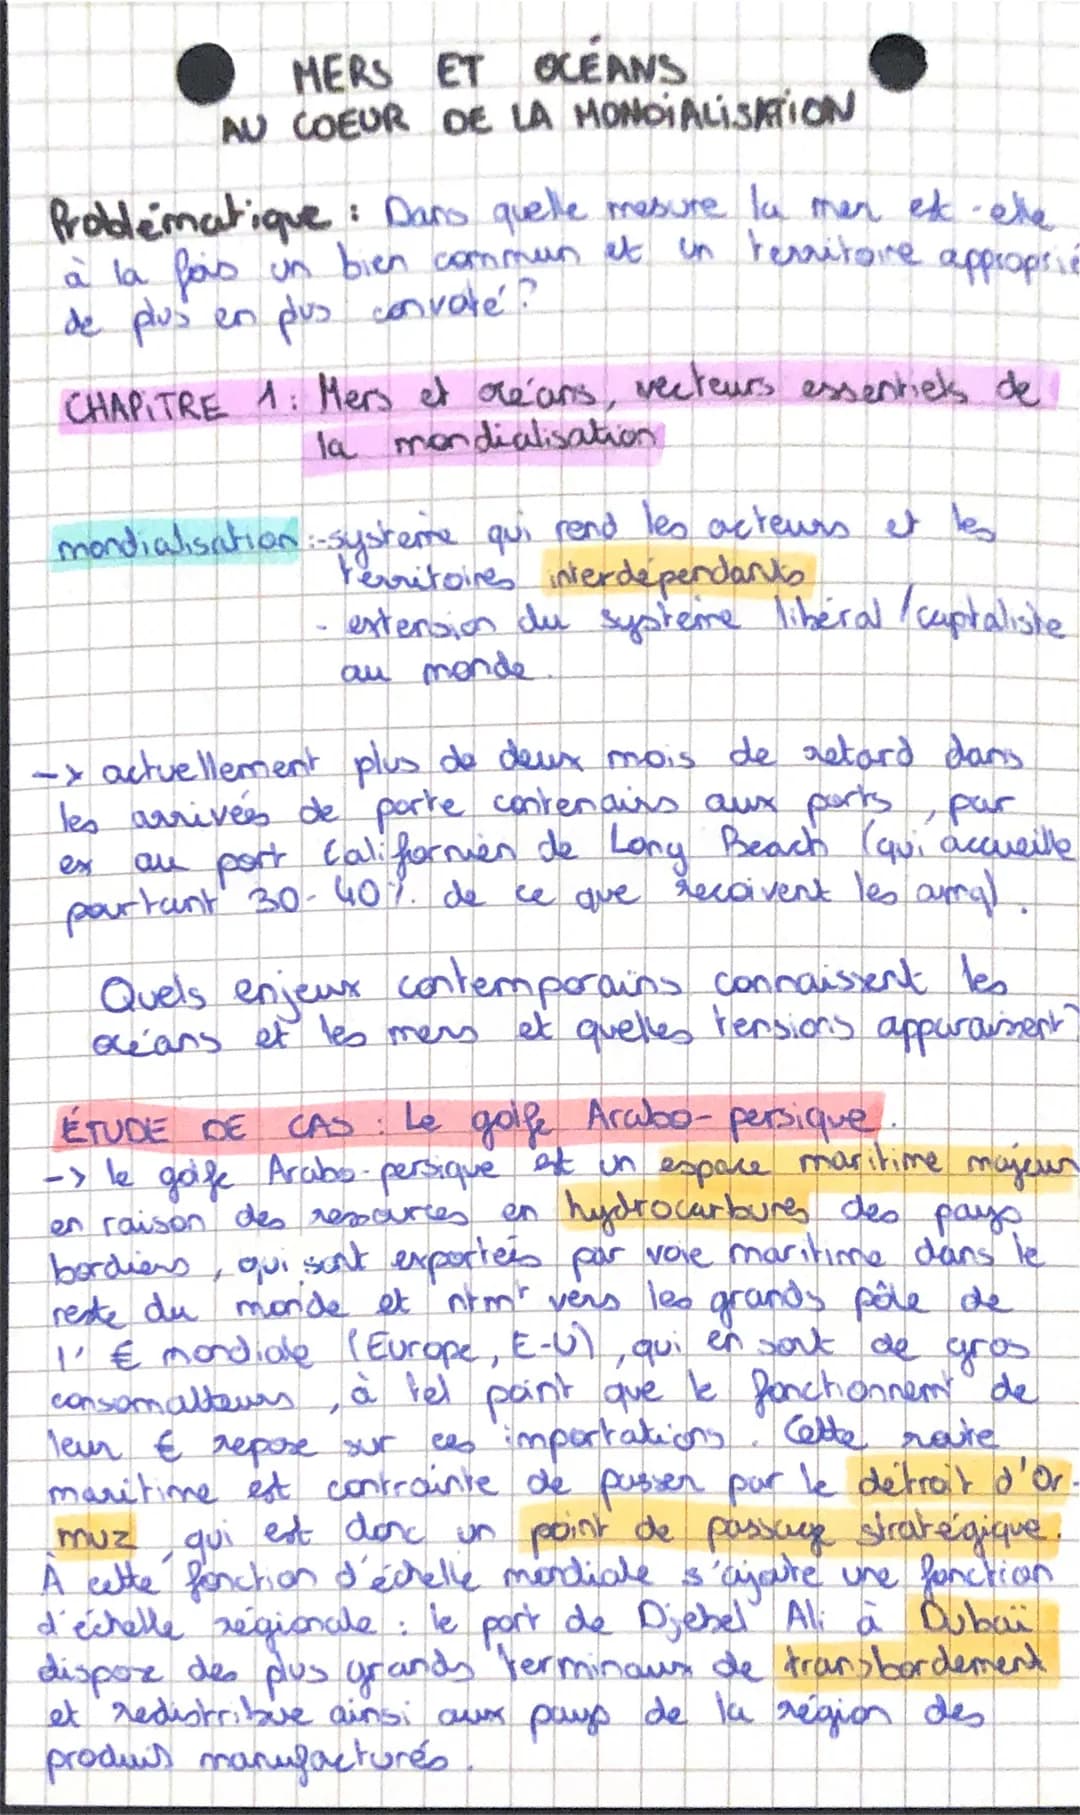 MERS ET OCÉANS
AU COEUR DE LA MONDIALISATION
Problématique : Dans quelle mesure la mer est-elle
à la fois un bien commun et un territoire approprié
de plus en plus convoité ?
CHAPITRE 1 : Mers et océans, vecteurs essentiels de
la mondialisation
mondialisation : - système qui rend les acteurs et les
territoires interdépendants
- extension du système libéral / capitaliste
au monde.
-> actuellement plus de deux mois de retard dans
les arrivées de porte contenairs aux ports, par
ex au port Californien de Long Beach (qui accueille
pourtant 30-40% de ce que reçoivent les amq).
Quels enjeux contemporains connaissent les
océans et les mers et quelles tensions apparaissent ?
ÉTUDE DE CAS : Le golfe Arabo-persique.
-> le golfe Arabo-persique est un espace maritime majeur
en raison des ressources en hydrocarbures des pays
bordiers, qui sont exportés par voie maritime dans le
reste du monde et ntmt vers les grands pôle de
l'€ mondiale (Europe, E-U), qui en sont de gros
consomatteurs, à tel point que le fonctionnemt de
leur € repose sur ces importations. Cette route
maritime est contrainte de passer par le détroit d'Or-
muz, qui est donc un point de passage stratégique.
À cette fonction d'échelle mondiale s'ajoute une fonction
d'échelle régionale : le port de Djebel Ali à Dubaï
dispose des plus grands terminaux de transbordement
et redistribue ainsi aux pays de la région des
produis manufacturés.